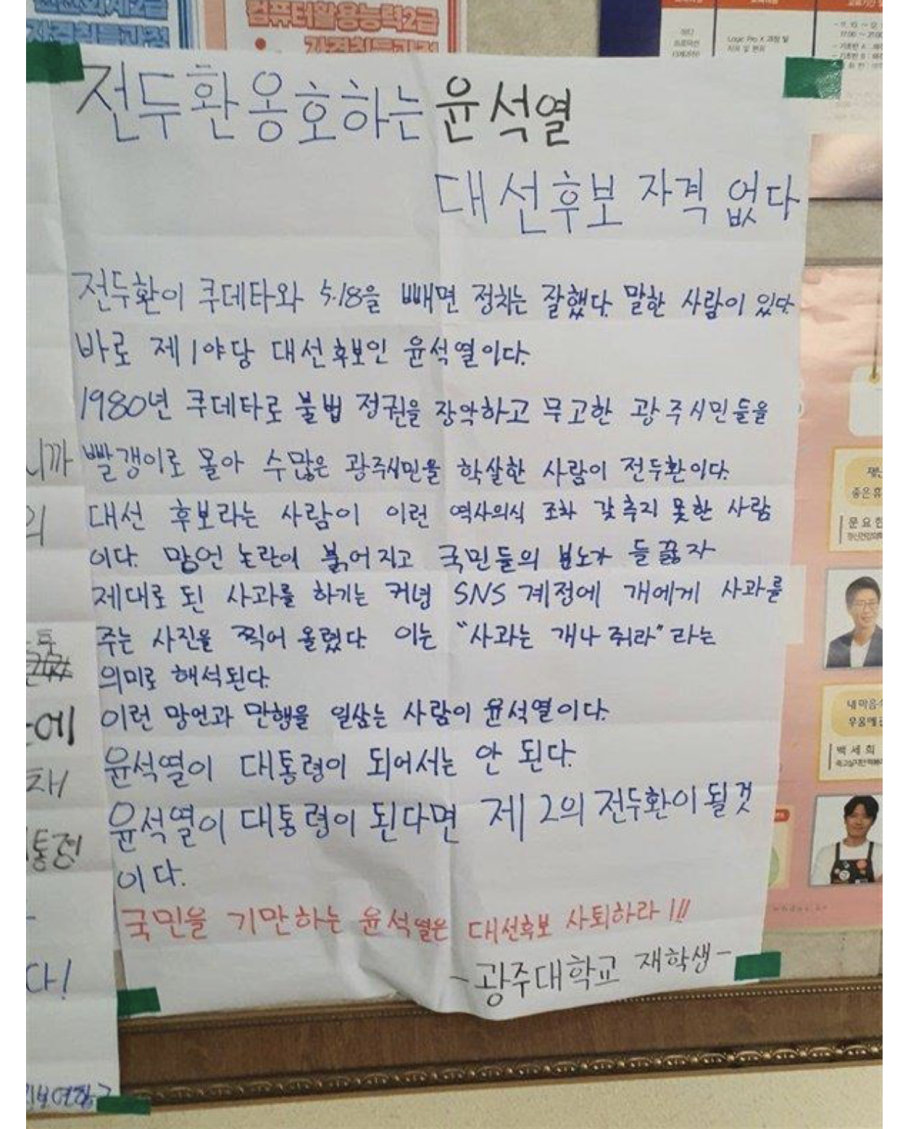 컴퓨터활용능력2급
자격취득과정
Logic Pro X 과정 및
전두환옹호하는 윤석열
대선후보 자격 없다
전두환이 쿠데타와 5.18을 빼면 정치는 잘했다. 말한 사람이 있다.
바로 제1야당 대선후보인 윤석열이다.
1980년 쿠데타로 불법 정권을 장악하고 무고한 광주시민들을
빨갱이로 몰아 수많은 광주시민을 학살한 사람이 전두환이다.
대선 후보라는 사람이 이런 역사의식 조차 갖추지 못한 사람
이다. 망언 논란이 붉어지고 국민들의 분노가 들끓자
제대로 된 사과를 하기는 커녕 SNS 계정에 개에게 사과를
주는 사진을 찍어 올렸다. 이는 "사과는 개나 줘라" 라는
의미로 해석된다.
이런 망언과 만행을 일삼는 사람이 윤석열이다.
윤석열이 대통령이 되어서는 안 된다.
윤석열이 대통령이 된다면 제 2의 전두환이 될것
이다.
국민을 기만하는 윤석열은 대선후보 사퇴하라!!!
-광주대학교 재학생-
니까
의
에
다!
좋은
내마음
백세희